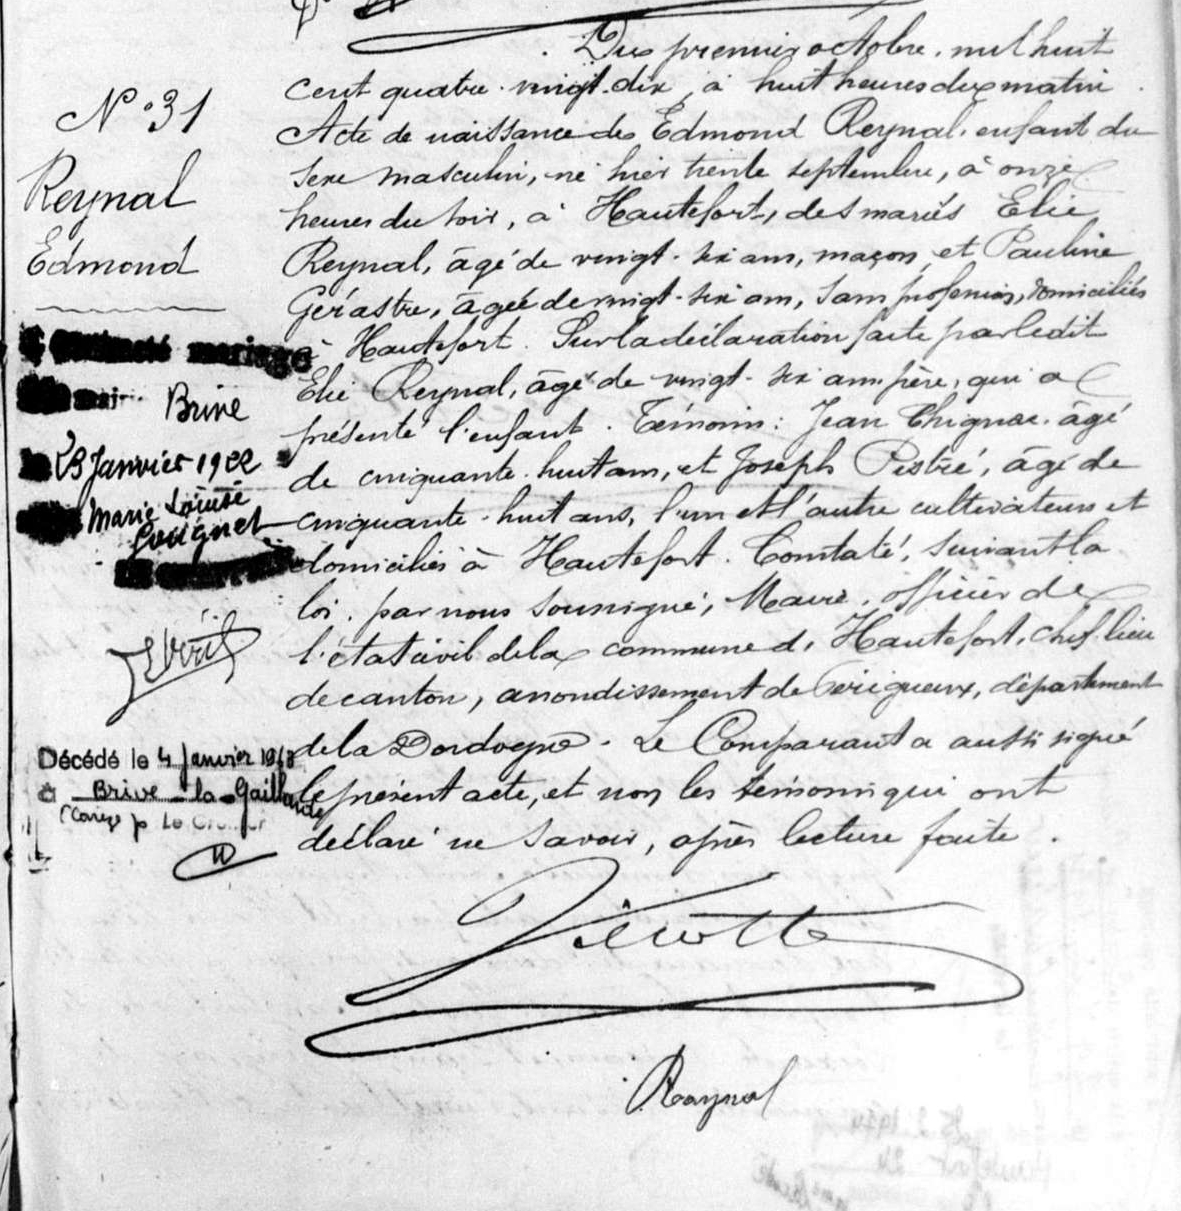 N° 31
Reynal
Edmond
mariage
Brive
23 Janvier 1922
Marie Louise
Décédé le 4 Janvier 1968
à Brive-la-Gaillarde
Du premier octobre, mil huit
cent quatre-vingt-dix, à huit heures du matin.
Acte de naissance de Edmond Reynal, enfant du
sexe masculin, né hier trente septembre, à onze
heures du soir, à Hautefort, des mariés Elie
Reynal, âgé de vingt-six ans, maçon, et Pauline
Gérastre, âgée de vingt-six ans, sans profession, domiciliés
à Hautefort. Sur la déclaration faite par ledit
Elie Reynal, âgé de vingt-six ans, père, qui a
présenté l'enfant. Témoins: Jean Chignac, âgé
de cinquante-huit ans, et Joseph Pestré, âgé de
cinquante-huit ans, l'un et l'autre cultivateurs et
domiciliés à Hautefort. Constaté, suivant la
loi, par nous soussigné, Maire, officier de
l'état civil de la commune d'Hautefort, chef-lieu
de canton, arrondissement de Périgueux, département
de la Dordogne. Le Comparant a aussi signé
le présent acte, et non les témoins qui ont
déclaré ne savoir, après lecture faite.
Reynal